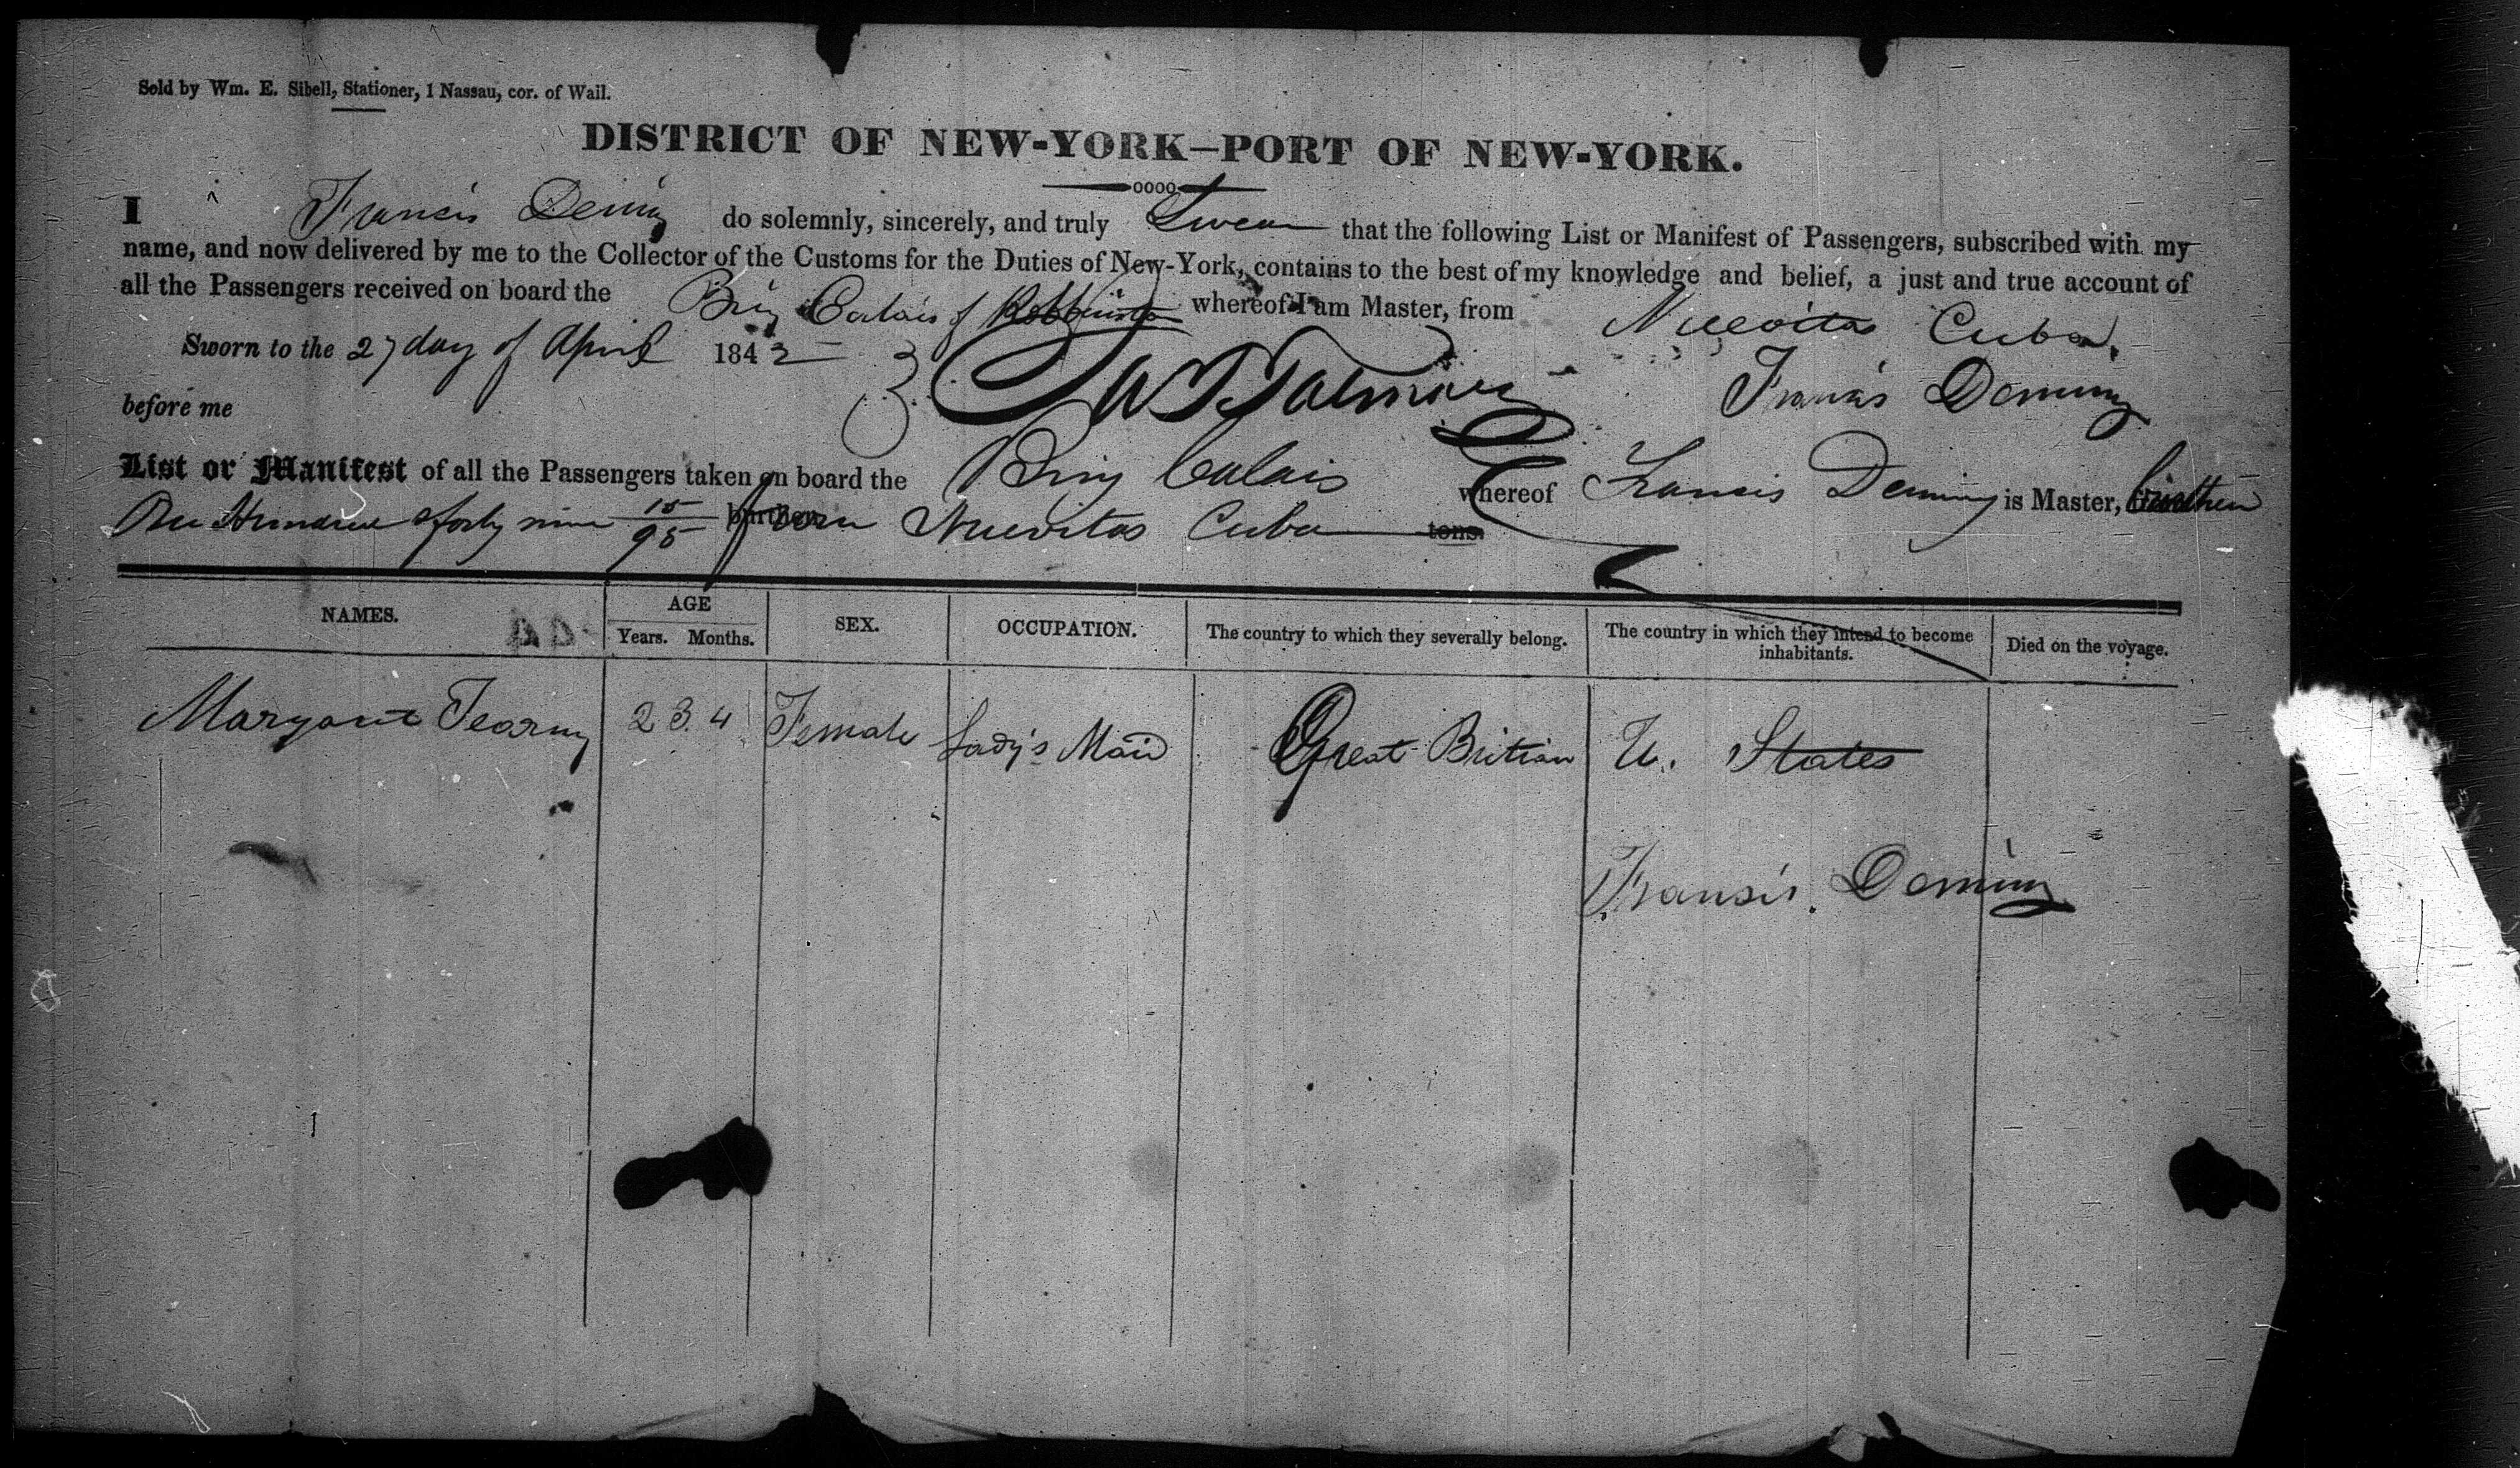 Sold by Wm. E. Sibell, Stationer, 1 Nassau, cor. of Wall.
DISTRICT OF NEW-YORK—PORT OF NEW-YORK.
I Francis Deming do solemnly, sincerely, and truly Swear that the following List or Manifest of Passengers, subscribed with my
name, and now delivered by me to the Collector of the Customs for the Duties of New-York, contains to the best of my knowledge and belief, a just and true account of
all the Passengers received on board the Brig Calais of Robbinston whereof I am Master, from Nuevitas Cuba.
Sworn to the 27 day of April 1842
Francis Deming
before me
List or Manifest of all the Passengers taken on board the Brig Calais whereof Francis Deming is Master, burthen
One Hundred & forty nine 15/95 from Nuevitas Cuba tons.
NAMES. AGE Years. Months. SEX. OCCUPATION. The country to which they severally belong. The country in which they intend to become inhabitants. Died on the voyage.
44
Margaret Tearny 23. 4 Female Lady's Maid Great Britian U. States
Francis Deming